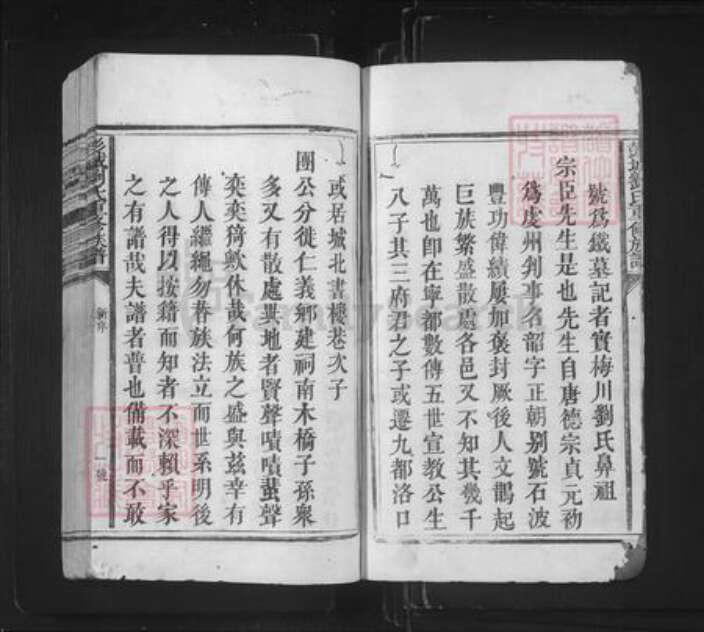 彭城劉氏重修族譜
號爲鐵墓記者實梅川劉氏鼻祖
宗臣先生是也先生自唐德宗貞元初
爲虔州刺事名韶字正朝别號石波
豐功偉績屢加褒封厥後人文鵲起
巨族繁盛散處各邑又不知其幾千
萬也卽在寧都數傳五世宣教公生
八子其三府君之子或遷九都洛口
或居城北書樓巷次子
團公分徙仁義鄉建祠南木橋子孫衆
多又有散處異地者賢聲嘖嘖蜚聲
奕奕猗歟休哉何族之盛與兹幸有
傳人繼繩勿替族法立而世系明後
之人得以按籍而知者不深賴乎家
之有譜哉夫譜者普也備載而不敢
彭城劉氏重修族譜
新序
一號